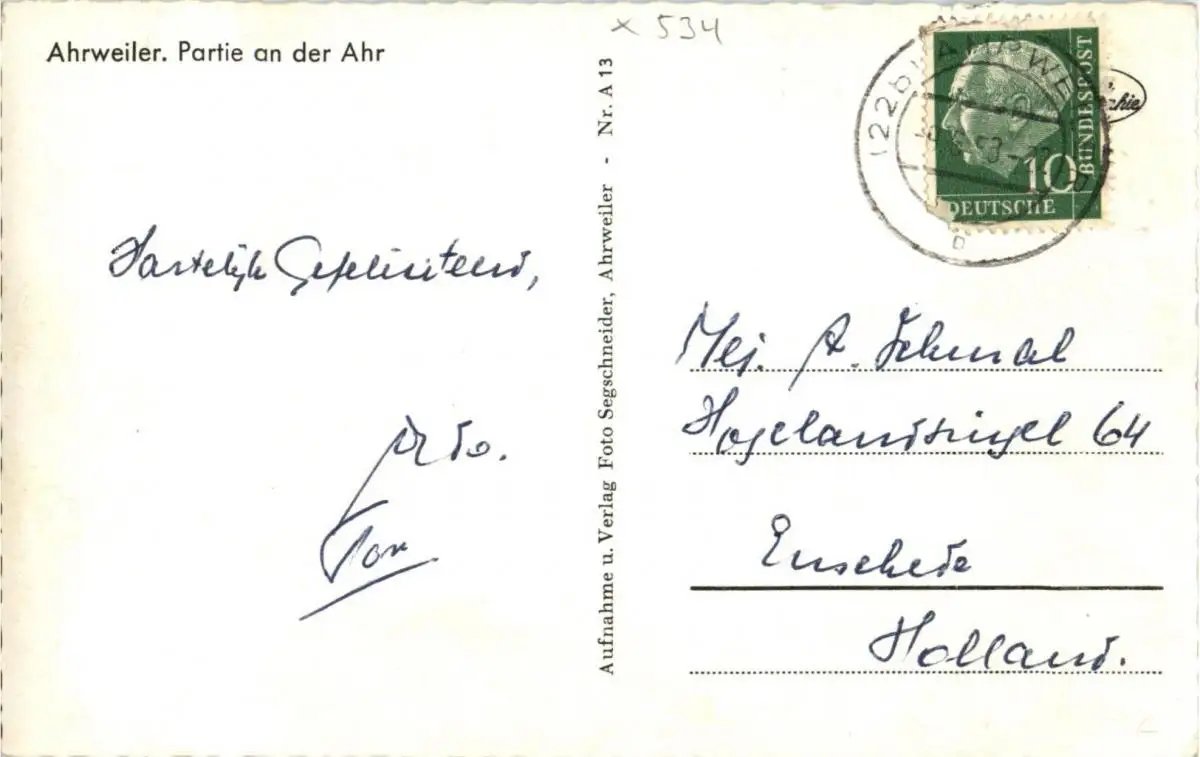 x 534
Ahrweiler. Partie an der Ahr
Hartelijk Gefeliciteerd,
Ton
Aufnahme u. Verlag Foto Segschneider, Ahrweiler - Nr. A 13
(22b) AHRWEI
53
10
DEUTSCHE
BUNDESPOST
b
Mej. A. Schmal
Hogelandsingel 64
Enschede
Holland.